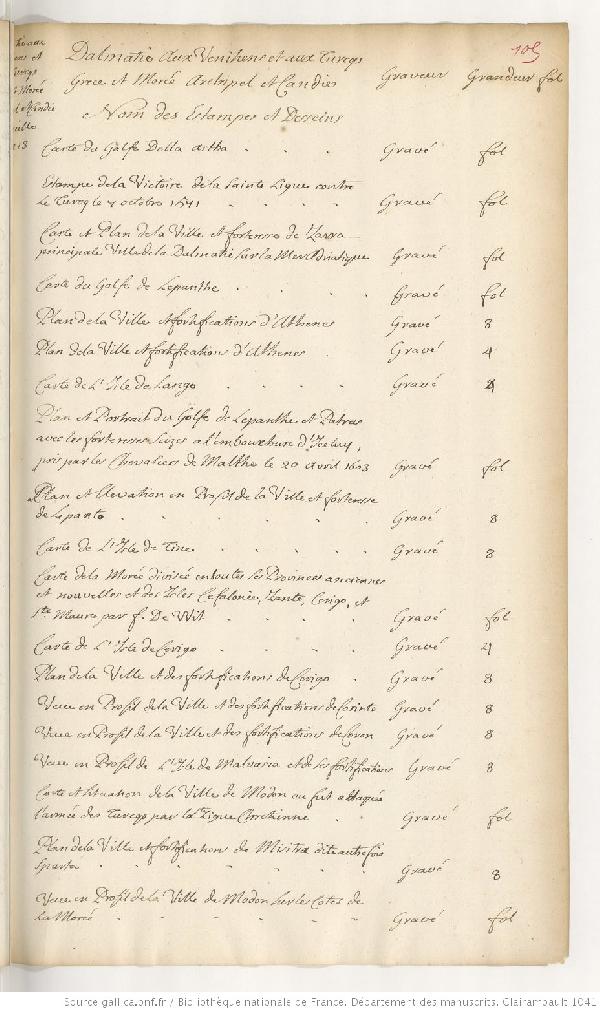 105
Dalmatie Aux Venitiens et aux Turcqs
Grece et Morée Archipel et Candie Graveur Grandeur fol
Nom des Estampes et Desseins
Carte du Golfe Della Gravé fol
Estampe de la Victoire de la Sainte Ligue contre
Le Turcq le 7 octobre 1571 Gravé fol
Carte et Plan de la Ville et forteresse de Zarra
principale Ville de la Dalmatie sur la Mer Adriatique Gravé fol
Carte du Golfe de Lepanthe Gravé fol
Plan de la Ville et fortifications d'Athenes Gravé 8
Plan de la Ville et fortifications d'Athenes Gravé 4
Carte de L'Isle de Lango Gravé 4
Plan et Portrait du Golfe de Lepanthe et Patras
avec les forteresses a l'embouchure d'Iceluy,
pris par les Chevaliers de Malthe le 20 Avril 1603 Gravé fol
Plan et Elevation en Profil de la Ville et forteresse
de Lepanto Gravé 8
Carte de L'Isle de Tine Gravé 8
Carte de la Morée divisée en toutes ses Provinces anciennes
et nouvelles et des Isles Cefalonie, Zante, Cerigo, et
Ste Maure par f. De Wit Gravé fol
Carte de L'Isle de Cerigo Gravé 4
Plan de la Ville et des fortifications de Cerigo Gravé 8
Veue en Profil de la Ville et des fortifications de Corinto Gravé 8
Veue en Profil de la Ville et des fortifications de Coron Gravé 8
Veue en Profil de L'Isle de Malvaria et de ses fortifications Gravé 8
Carte et situation de la Ville de Modon ou fut attaquée
l'armée des Turcqs par la Ligue Chretienne Gravé fol
Plan de la Ville et fortifications de Misitra dite autrefois
Sparta Gravé 8
Veue en Profil de la Ville de Modon sur les Cotes de
la Morée Gravé fol
Source gallica.bnf.fr / Bibliothèque nationale de France. Département des manuscrits. Clairambault 1041